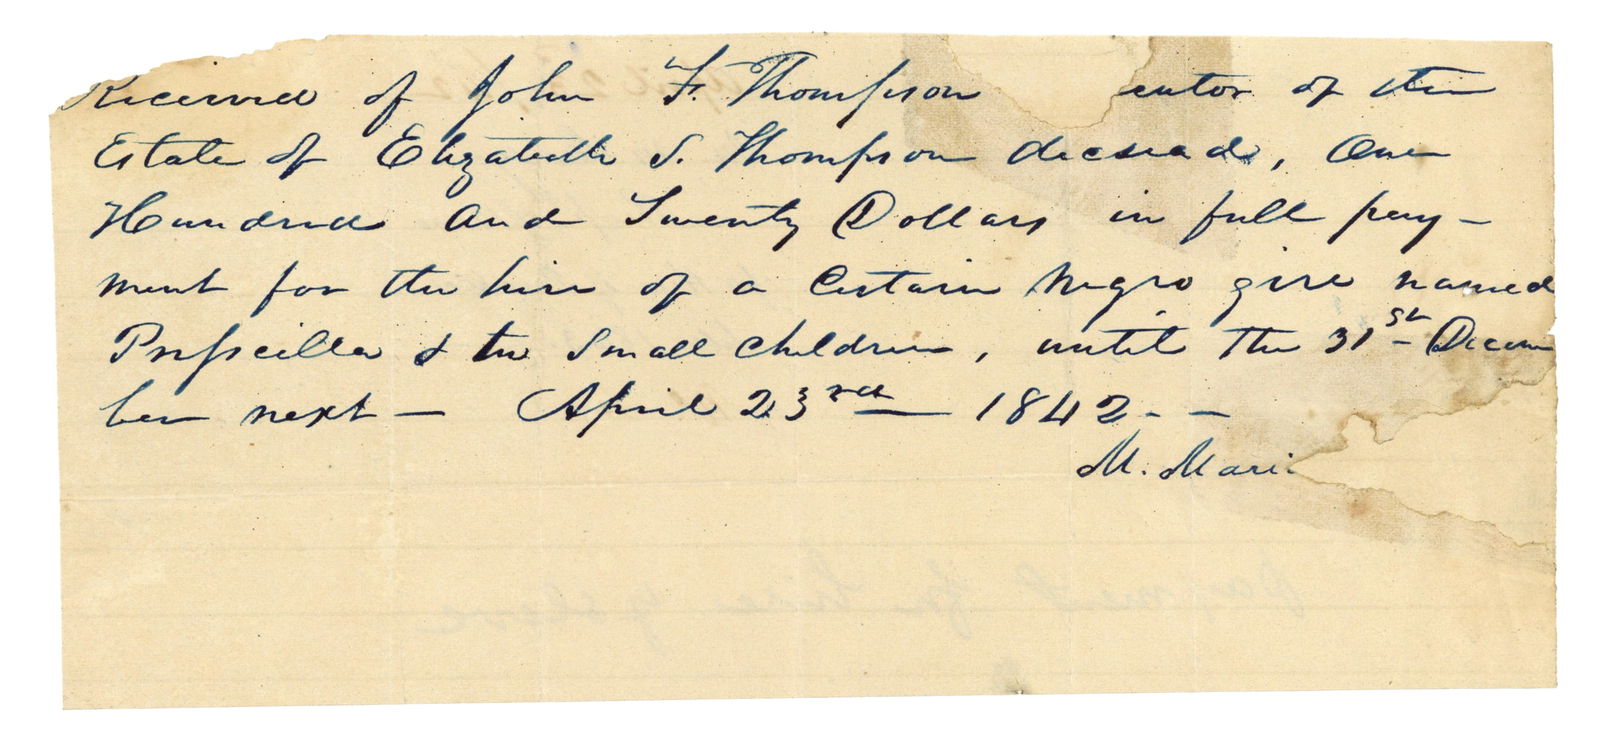 Received of John F. Thompson  eutor of the
Estate of Elizabeth S. Thompson decsead, One
Hundred and Twenty Dollars in full pay-
ment for the hire of a Certain Negro girl named
Prisscilla & two Small Children, until the 31st Decem
ber next — April 23rd — 1842 - -
M. Mari